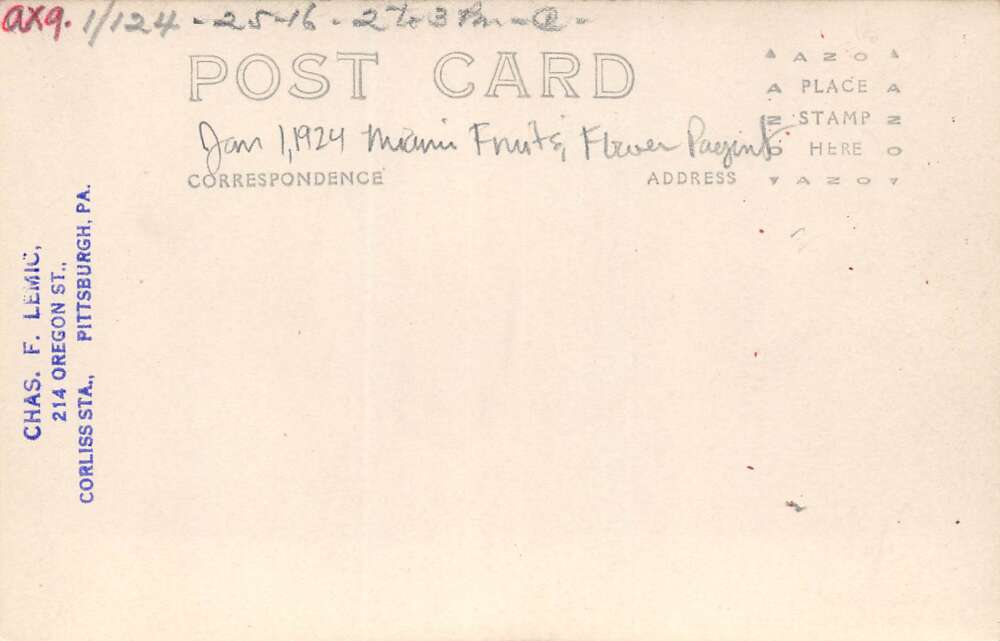 axq. 1/124 - 25-16 - 2 to 3 Pm - @ -
POST CARD
Jan 1, 1924 Miami Fruits, Flower Pagint
CORRESPONDENCE
ADDRESS
AZO
PLACE
STAMP
HERE
AZO
AZO
AZO
CHAS. F. LEMIC,
214 OREGON ST.,
CORLISS STA., PITTSBURGH, PA.